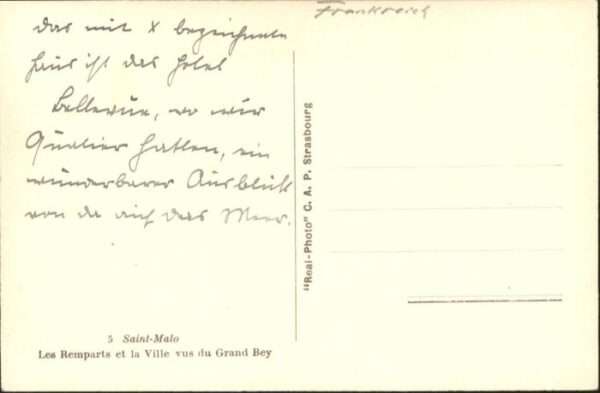 Frankreich
das mit X bezeichnete
Haus ist das Hotel
Bellevue, wo wir
Quatier hatten, ein
wunderbarer Ausblick
von da auf das Meer.
"Real-Photo" C. A. P. Strasbourg
5 Saint-Malo
Les Remparts et la Ville vus du Grand Bey